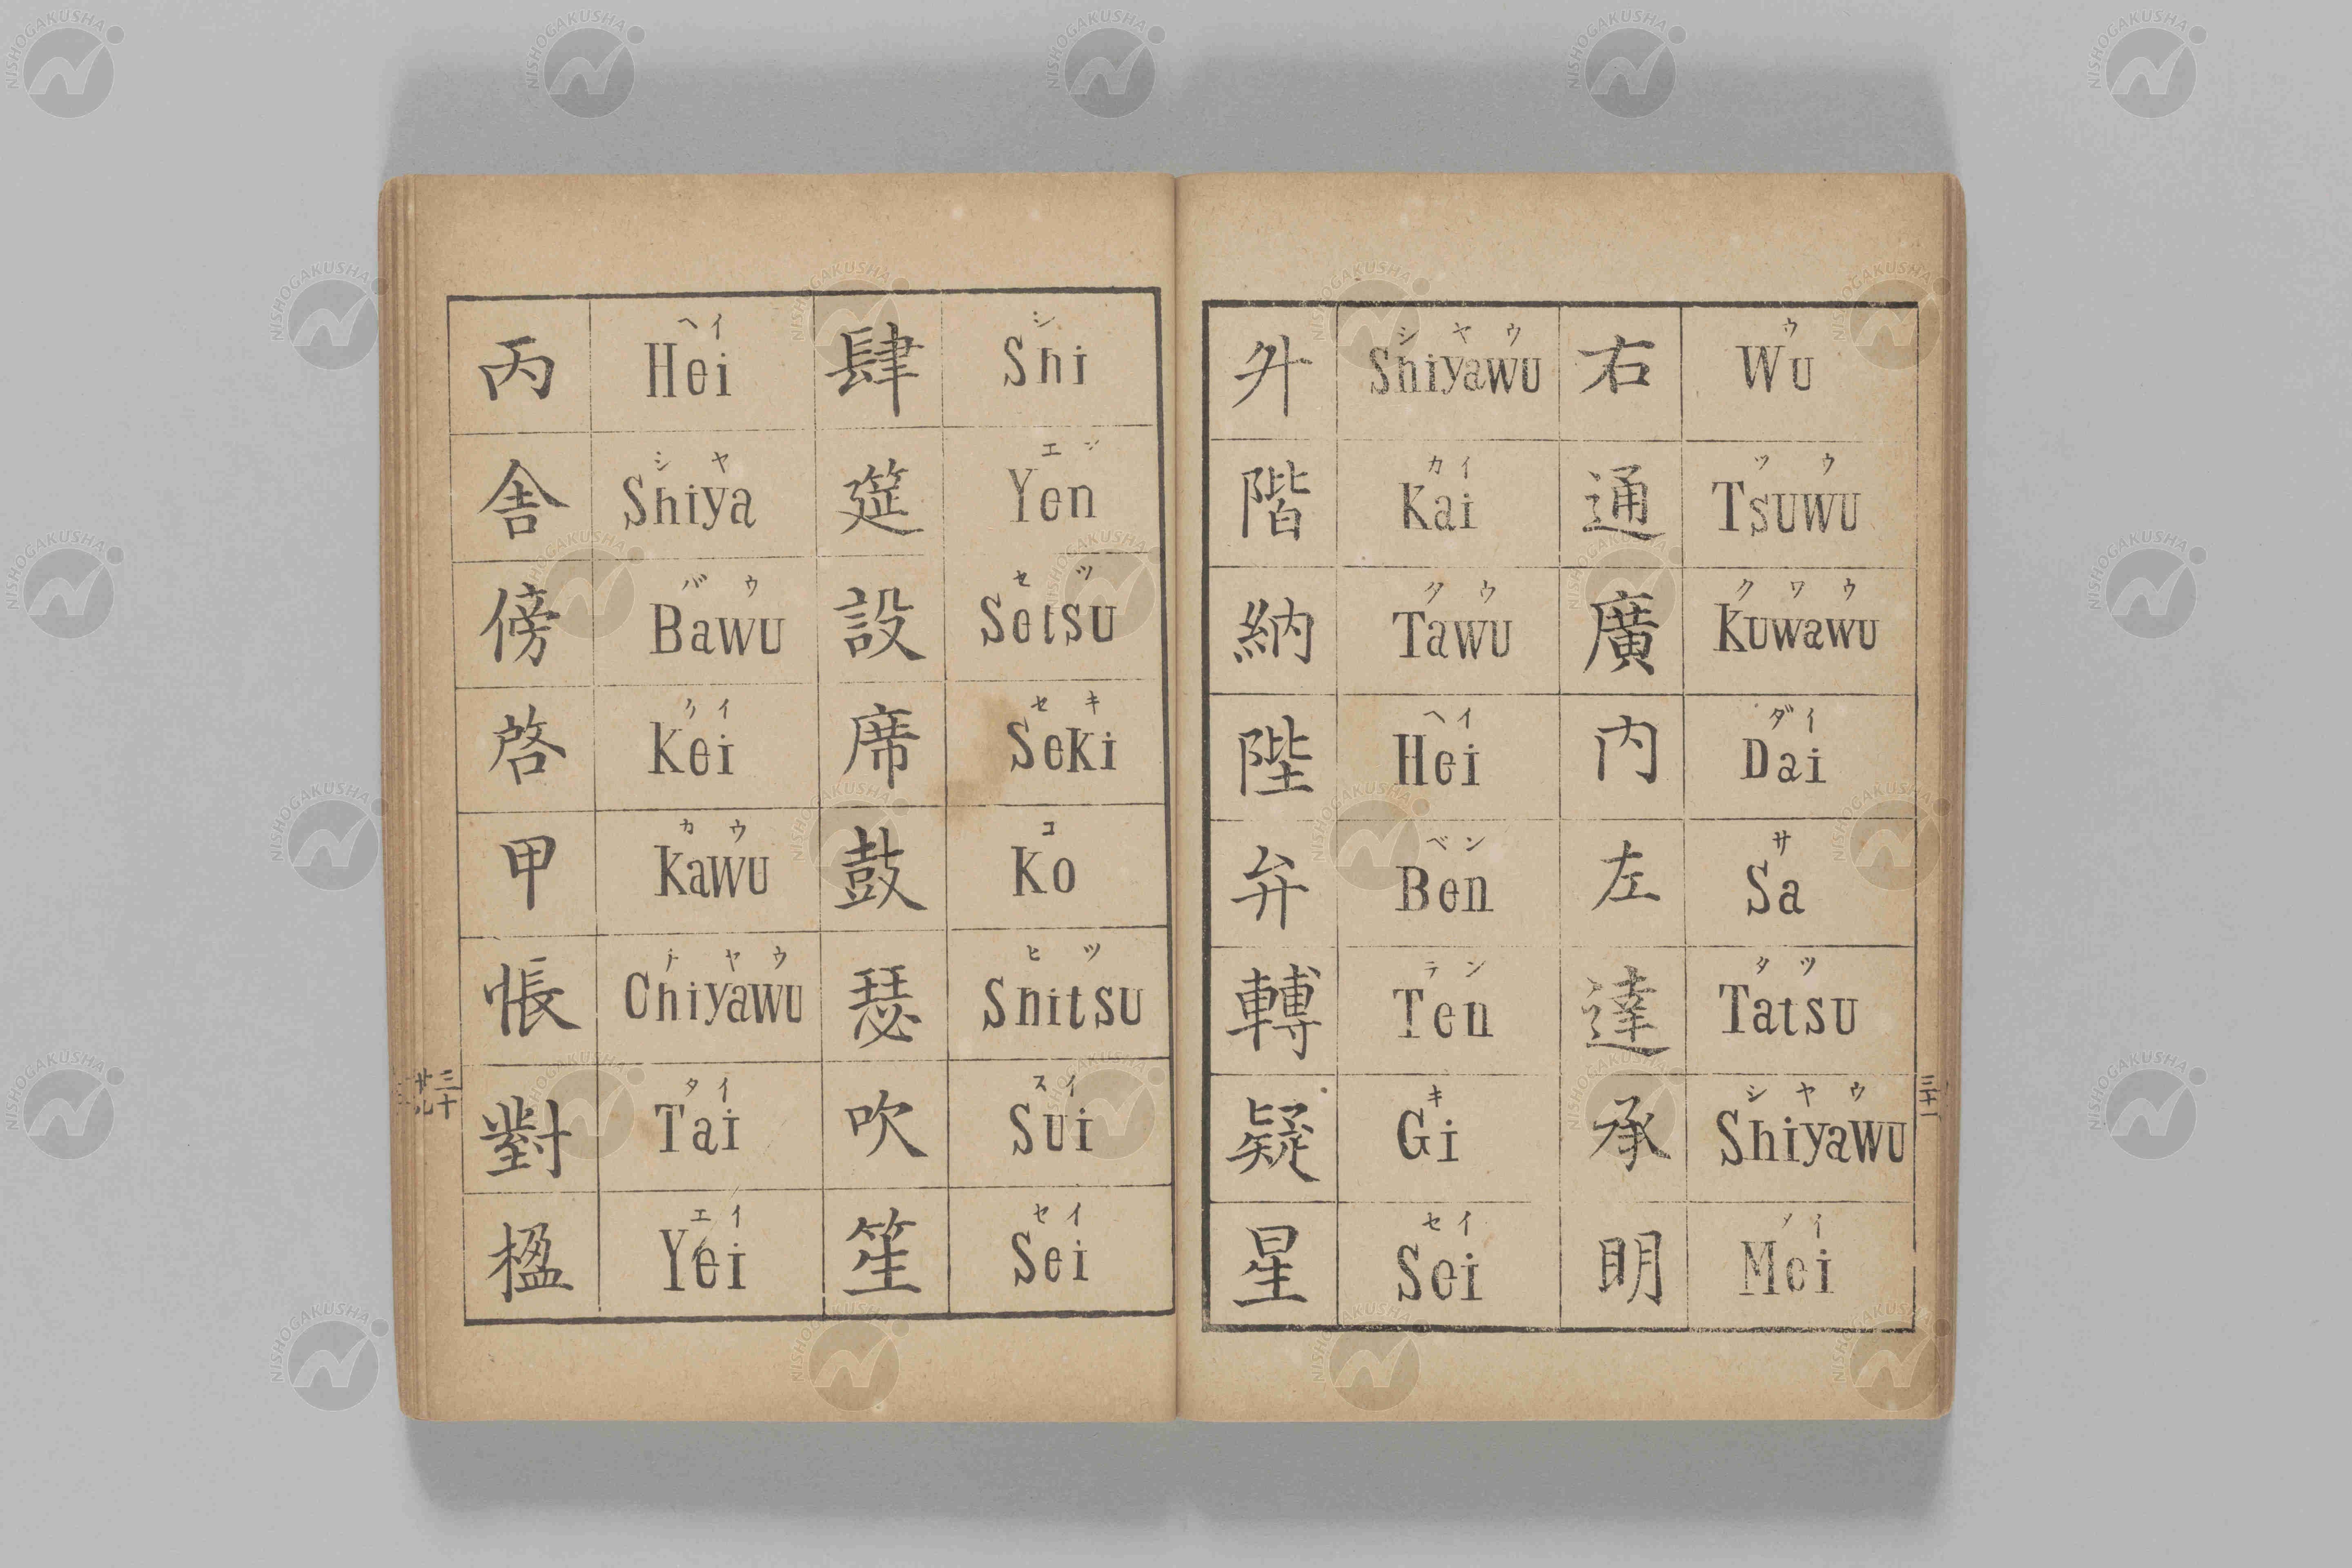 丙 ヘイ Hei
舎 シヤ Shiya
傍 バウ Bawu
啓 ケイ Kei
甲 カウ Kawu
帳 チヤウ Chiyawu
對 タイ Tai
楹 エイ Yei
肆 シ Shi
筵 エン Yen
設 セツ Setsu
席 セキ Seki
鼓 コ Ko
瑟 ヒツ Shitsu
吹 スイ Sui
笙 セイ Sei
三十
升 シヤウ Shiyawu
階 カイ Kai
納 タウ Tawu
陛 ヘイ Hei
弁 ベン Ben
轉 テン Ten
疑 キ Gi
星 セイ Sei
右 ウ Wu
通 ツウ Tsuwu
廣 クワウ Kuwawu
内 ダイ Dai
左 サ Sa
達 タツ Tatsu
承 シヤウ Shiyawu
明 メイ Mei
三十一
NISHOGAKUSHA